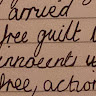 arrived
free guilt
innocent
free, action